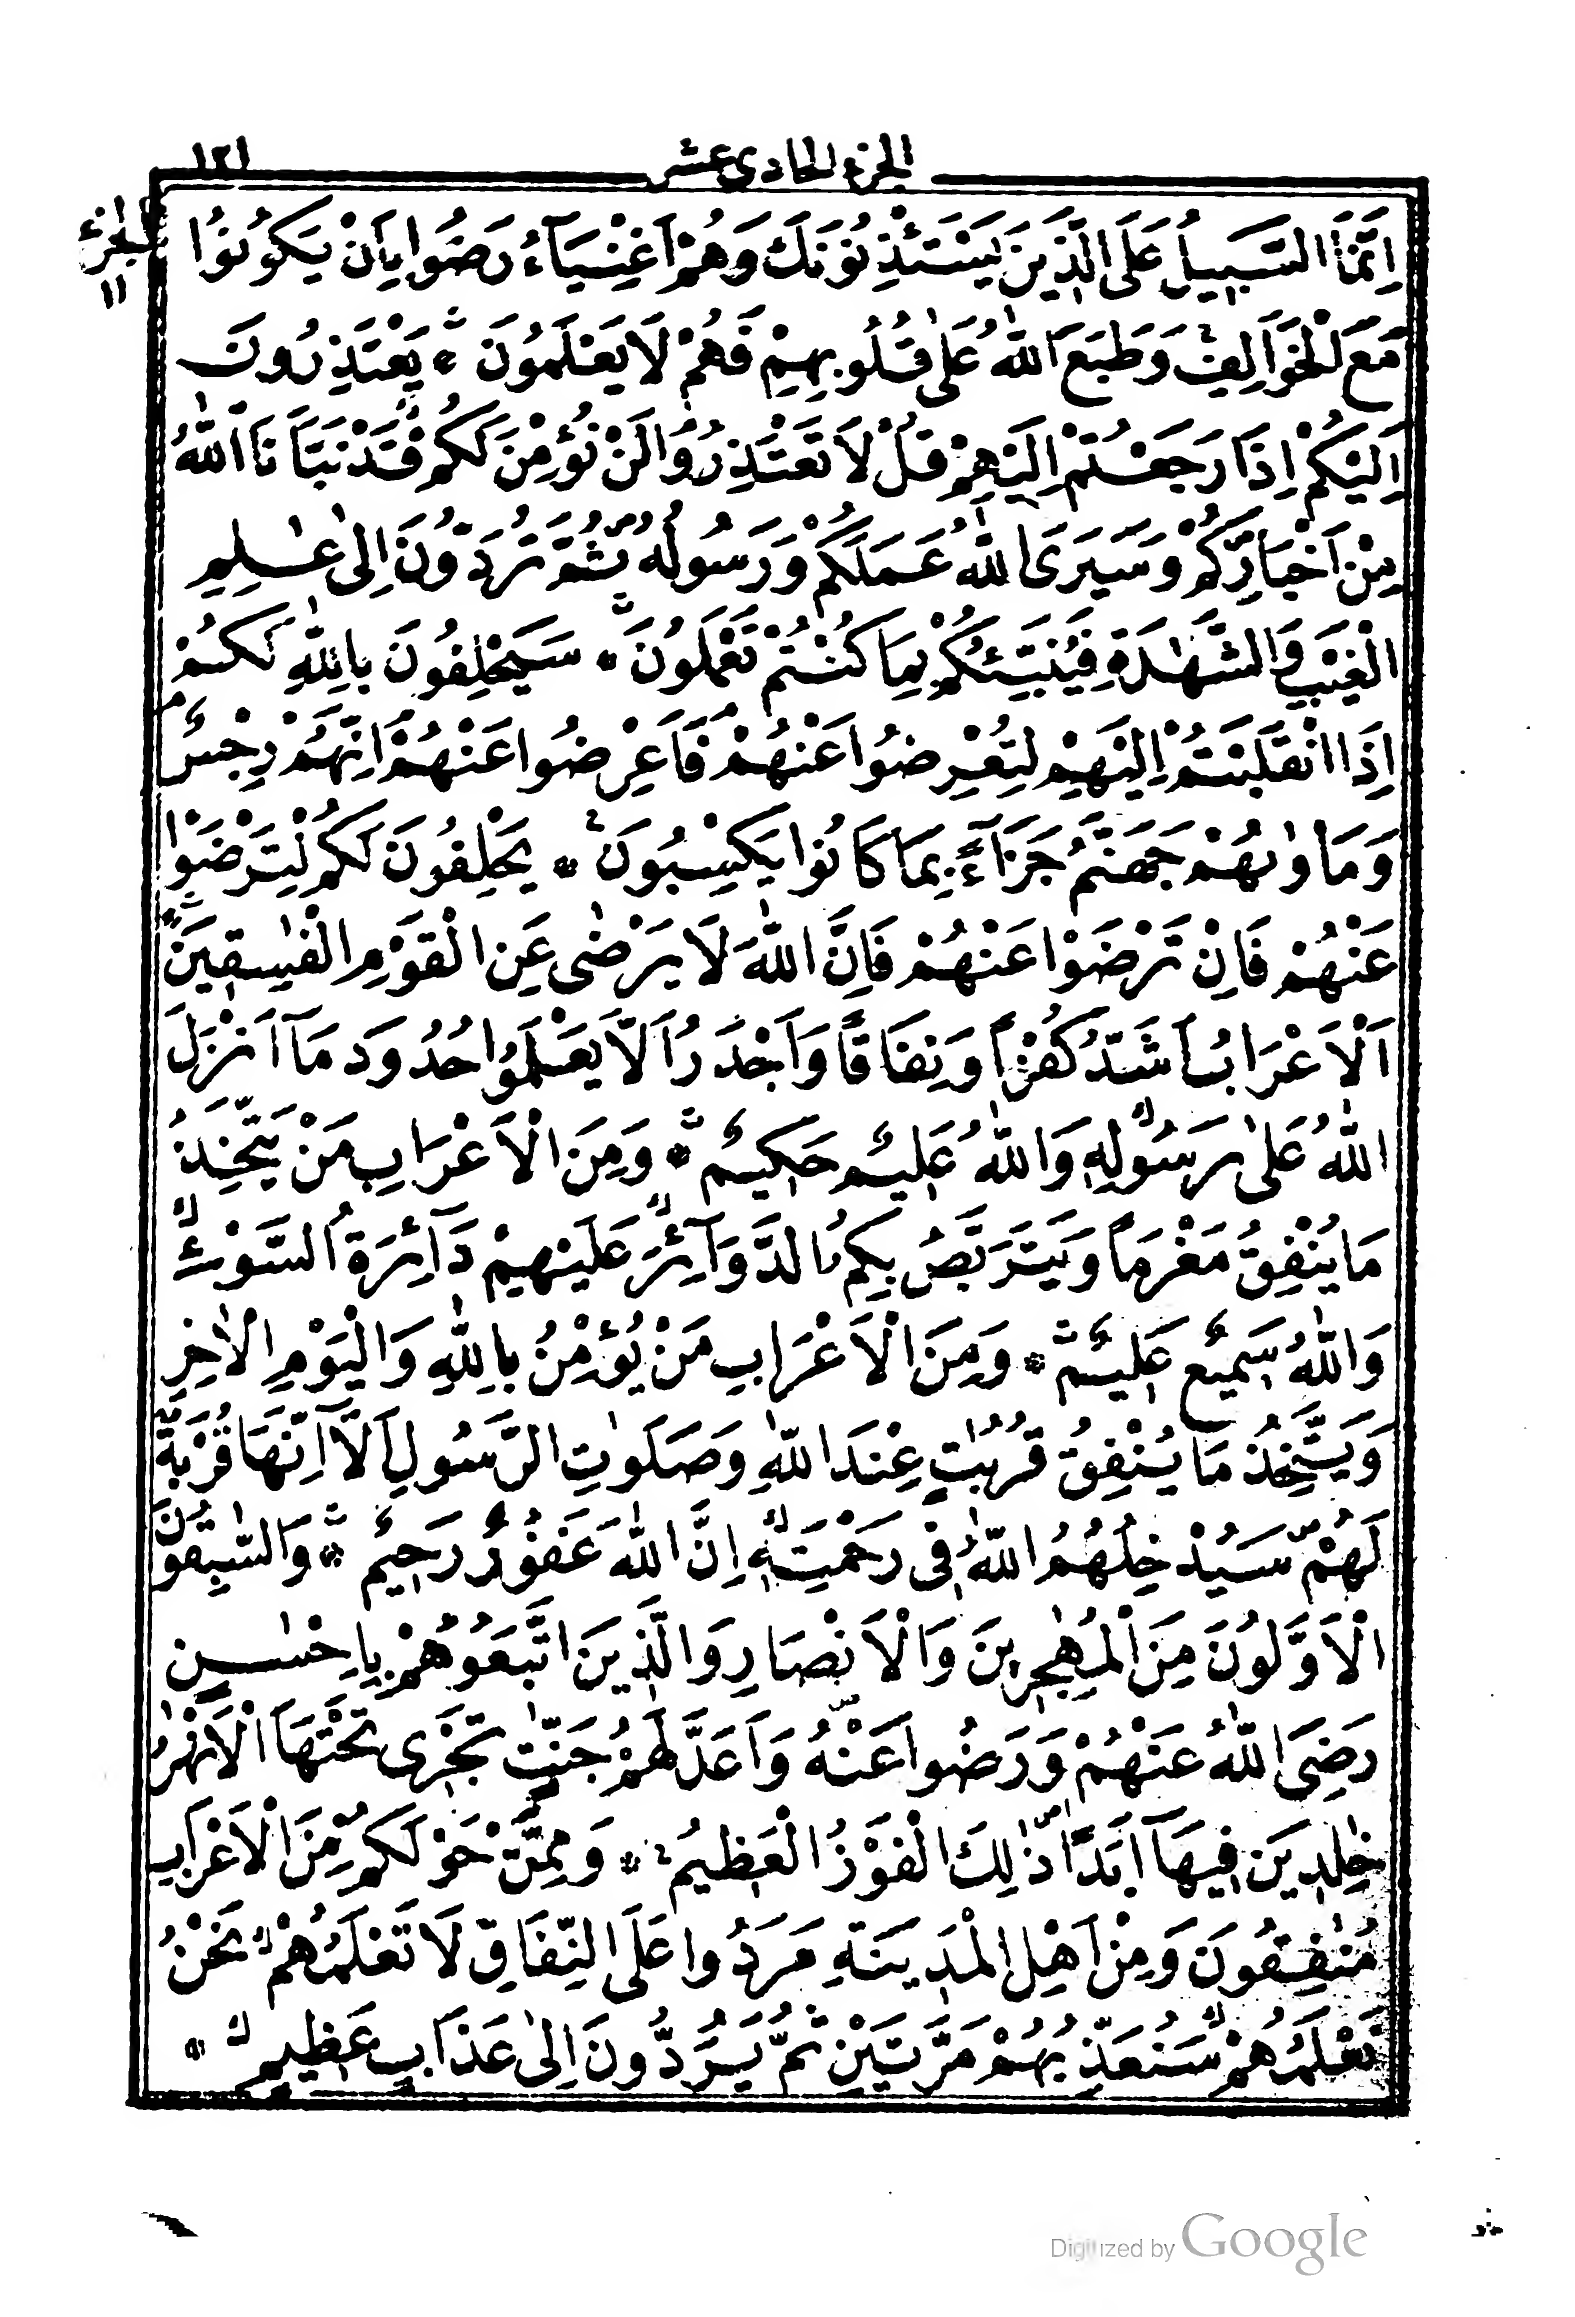 الجزء الحادى عشر ١٢١
الجزء
١١
اِنَّمَا السَّبِيلُ عَلَى الَّذِينَ يَسْتَئْذِنُونَكَ وَهُمْ اَغْنِيَآءُ رَضُوا بِاَنْ يَكُونُوا
مَعَ الْخَوَالِفِ وَطَبَعَ اللّٰهُ عَلٰى قُلُوبِهِمْ فَهُمْ لَا يَعْلَمُونَ * يَعْتَذِرُونَ
اِلَيْكُمْ اِذَا رَجَعْتُمْ اِلَيْهِمْ قُلْ لَا تَعْتَذِرُوا لَنْ نُؤْمِنَ لَكُمْ قَدْ نَبَّاَنَا اللّٰهُ
مِنْ اَخْبَارِكُمْ وَسَيَرَى اللّٰهُ عَمَلَكُمْ وَرَسُولُهُ ثُمَّ تُرَدُّونَ اِلٰى عٰلِمِ
الْغَيْبِ وَالشَّهٰدَةِ فَيُنَبِّئُكُمْ بِمَا كُنْتُمْ تَعْمَلُونَ * سَيَحْلِفُونَ بِاللّٰهِ لَكُمْ
اِذَا انْقَلَبْتُمْ اِلَيْهِمْ لِتُعْرِضُوا عَنْهُمْ فَاَعْرِضُوا عَنْهُمْ اِنَّهُمْ رِجْسٌ
وَمَاْوٰىهُمْ جَهَنَّمُ جَزَآءً بِمَا كَانُوا يَكْسِبُونَ * يَحْلِفُونَ لَكُمْ لِتَرْضَوْا
عَنْهُمْ فَاِنْ تَرْضَوْا عَنْهُمْ فَاِنَّ اللّٰهَ لَا يَرْضٰى عَنِ الْقَوْمِ الْفٰسِقِينَ
اَلْاَعْرَابُ اَشَدُّ كُفْرًا وَنِفَاقًا وَاَجْدَرُ اَلَّا يَعْلَمُوا حُدُودَ مَآ اَنْزَلَ
اللّٰهُ عَلٰى رَسُولِهِ وَاللّٰهُ عَلِيمٌ حَكِيمٌ * وَمِنَ الْاَعْرَابِ مَنْ يَتَّخِذُ
مَا يُنْفِقُ مَغْرَمًا وَيَتَرَبَّصُ بِكُمُ الدَّوَآئِرَ عَلَيْهِمْ دَآئِرَةُ السَّوْءِ
وَاللّٰهُ سَمِيعٌ عَلِيمٌ * وَمِنَ الْاَعْرَابِ مَنْ يُؤْمِنُ بِاللّٰهِ وَالْيَوْمِ الْاٰخِرِ
وَيَتَّخِذُ مَا يُنْفِقُ قُرُبٰتٍ عِنْدَ اللّٰهِ وَصَلَوٰتِ الرَّسُولِ اَلَآ اِنَّهَا قُرْبَةٌ
لَهُمْ سَيُدْخِلُهُمُ اللّٰهُ فِى رَحْمَتِهِ اِنَّ اللّٰهَ غَفُورٌ رَحِيمٌ * وَالسّٰبِقُونَ
الْاَوَّلُونَ مِنَ الْمُهٰجِرِينَ وَالْاَنْصَارِ وَالَّذِينَ اتَّبَعُوهُمْ بِاِحْسٰنٍ
رَضِىَ اللّٰهُ عَنْهُمْ وَرَضُوا عَنْهُ وَاَعَدَّ لَهُمْ جَنّٰتٍ تَجْرِى تَحْتَهَا الْاَنْهٰرُ
خٰلِدِينَ فِيهَآ اَبَدًا ذٰلِكَ الْفَوْزُ الْعَظِيمُ * وَمِمَّنْ حَوْلَكُمْ مِنَ الْاَعْرَابِ
مُنٰفِقُونَ وَمِنْ اَهْلِ الْمَدِينَةِ مَرَدُوا عَلَى النِّفَاقِ لَا تَعْلَمُهُمْ نَحْنُ
نَعْلَمُهُمْ سَنُعَذِّبُهُمْ مَرَّتَيْنِ ثُمَّ يُرَدُّونَ اِلٰى عَذَابٍ عَظِيمٍ *
Digitized by Google